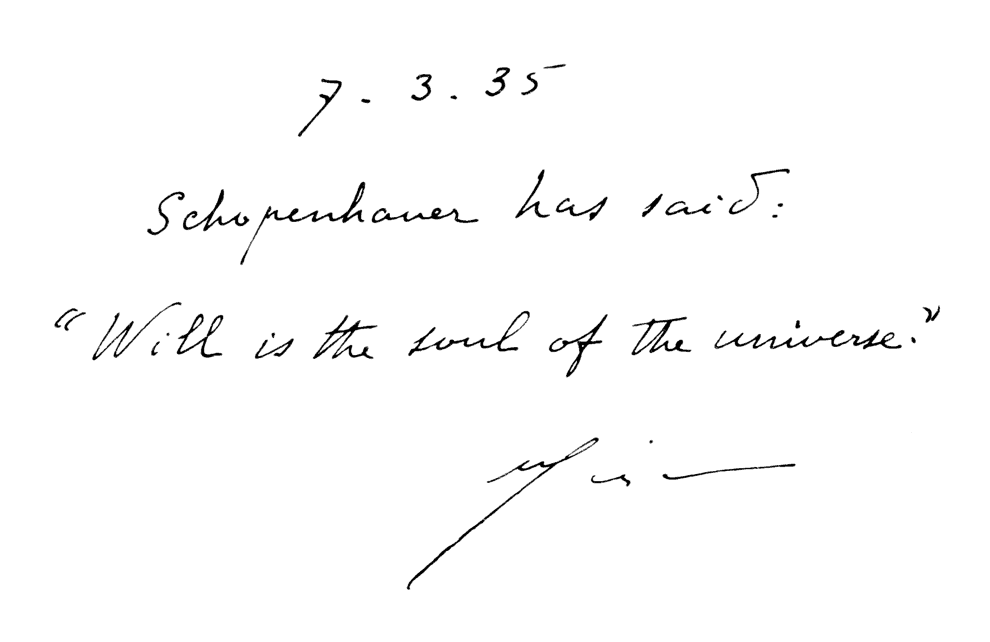 7. 3. 35
Schopenhauer has said:
“Will is the soul of the universe.”